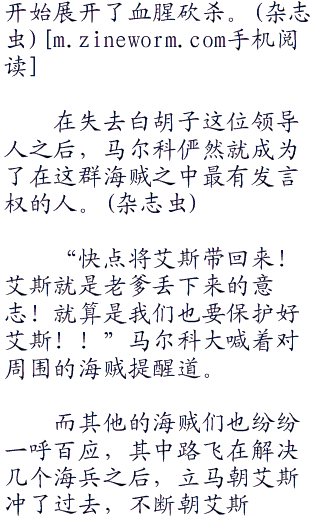 开始展开了血腥砍杀。(杂志
虫)[m.zineworm.com手机阅
读]
在失去白胡子这位领导
人之后，马尔科俨然就成为
了在这群海贼之中最有发言
权的人。(杂志虫)
“快点将艾斯带回来！
艾斯就是老爹丢下来的意
志！就算是我们也要保护好
艾斯！！”马尔科大喊着对
周围的海贼提醒道。
而其他的海贼们也纷纷
一呼百应，其中路飞在解决
几个海兵之后，立马朝艾斯
冲了过去，不断朝艾斯